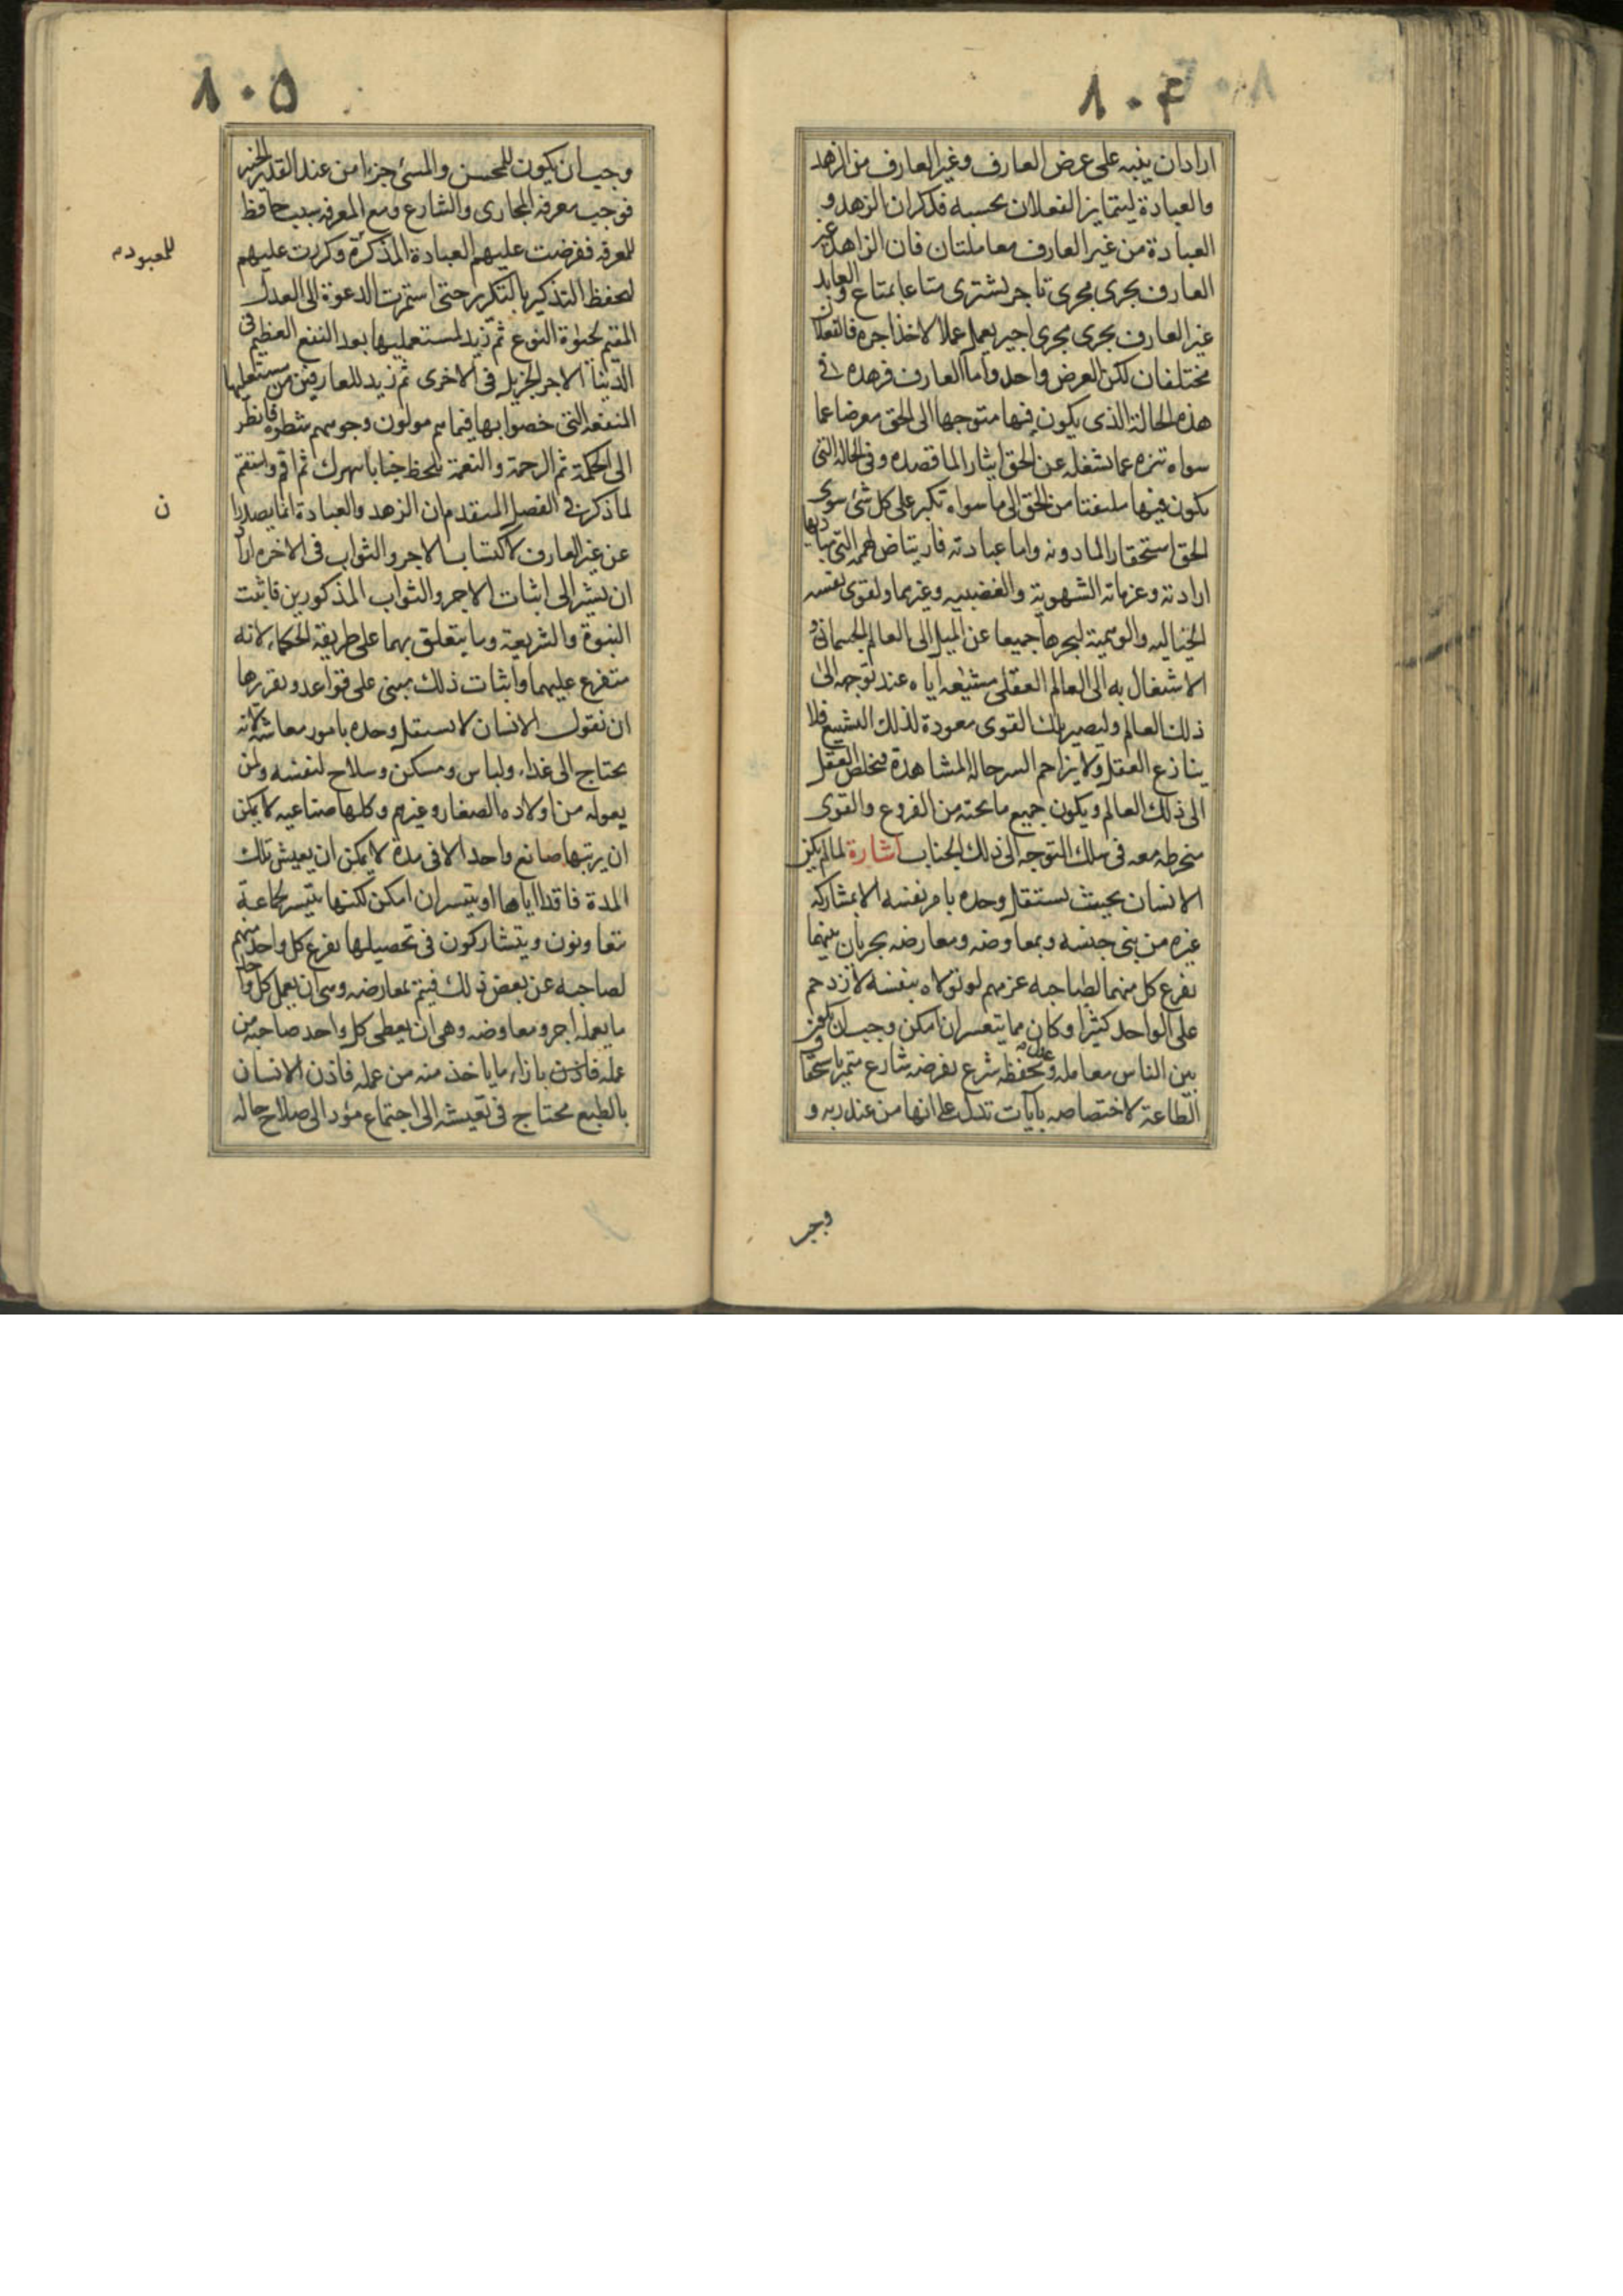 ٨٠٤
اراد ان ينبه على عرض العارف وغير العارف من الزهد
والعبادة ليتمايز الفعلان بحسبه فذكر ان الزهد و
العبادة من غير العارف معاملتان فان الزاهد غير
العارف يجرى مجرى تاجر يشترى متاعا بمتاع والعابد
غير العارف يجرى مجرى اجير يعمل عملا لاخذ اجره فالفعلان
مختلفان لكن العرض واحد واما العارف فزهده فى
هذه الحالة الذى يكون فيها متوجها الى الحق معرضا عما
سواه تنزه عما يشغله عن الحق ايثارا لما قصده وفى الحالة التى
يكون فيها ملتفتا من الحق الى ما سواه تكبر على كل شئ سوى
الحق استحقارا لما دونه واما عبادته فارتياض لهممه التى هى مبادى
ارادته وعزماته الشهوية والغضبيه وغيرهما ولقوى نفسه
الخياليه والوهمية ليجرها جميعا عن الميل الى العالم الجسمانى و
الاشتغال به الى العالم العقلى مشيعه اياه عند توجهه الى
ذلك العالم وليصير تلك القوى معودة لذلك التشيع فلا
ينازع العقل ولا يزاحم السر حاله المشاهدة فيخلص العقل
الى ذلك العالم ويكون جميع ما تحته من الفروع والقوى
منخرطه معه فى سلك التوجه الى ذلك الجناب اشارة لما لم يكن
الانسان بحيث يستقل وحده بامر نفسه الا بمشاركه
غيره من بنى جنسه وبمعاوضه ومعارضه يجريان بينهما
يفرع كل منهما لصاحبه عن مهم لو تولاه بنفسه لازدحم
على الواحد كثيرا وكان مما يتعسر ان امكن وجب ان يكون
بين الناس معامله وعدل يحفظه شرع يفرضه شارع متميز باستحقاق
الطاعة لاختصاصه بآيات تدل على انها من عند ربه و
وجب
٨٠٥
وجب ان يكون للمحسن والمسئ جزاء من عند القدير الخبير
فوجب معرفه المجازى والشارع ومع المعرفه سبب حافظ
للمعرفه ففرضت عليهم العبادة المذكرة وكررت عليهم
للمعبود
ليحفظ التذكير بالتكرير حتى استمرت الدعوة الى العدل
المقيم لحيوة النوع ثم زيد لمستعمليها بعد النفع العظيم فى
الدنيا الاجر الجزيل فى الاخرى ثم زيد للعارفين من مستعمليها
المنفعه التى خصوا بها فيما هم مولون وجوههم شطره فانظر
الى الحكمة ثم الرحمة والنعمة تلحظ جنابا تبهرك ثم اقم واستقم
ن
لما ذكر فى الفصل المتقدم ان الزهد والعبادة انما يصدران
عن غير العارف لاكتساب الاجر والثواب فى الاخره اراد
ان يشير الى اثبات الاجر والثواب المذكورين فاثبت
النبوة والشريعة وما يتعلق بهما على طريقة الحكماء لانه
متفرع عليهما واثبات ذلك مبنى على قواعد وتقريرها
ان نقول الانسان لا يستقل وحده بامور معاشه لانه
يحتاج الى غذاء ولباس ومسكن وسلاح لنفسه ولمن
يعوله من اولاده الصغار وغيرهم وكلها صناعيه لا يمكن
ان يرتبها صانع واحد الا فى مدة لا يمكن ان يعيش تلك
المدة فاقدا اياها او يتعسر ان امكن لكنها يتيسر لجماعة
يتعاونون ويتشاركون فى تحصيلها يفرع كل واحد منهم
لصاحبه عن بعض ذلك فيتم بمعارضه وهى ان يعمل كل واحد
ما يعمله اجر ومعاوضه وهى ان يعطى كل واحد صاحبه من
عمله بازاء ما ياخذ منه من عمله فاذن الانسان
بالطبع محتاج فى تعيشه الى اجتماع مؤد الى صلاح حاله